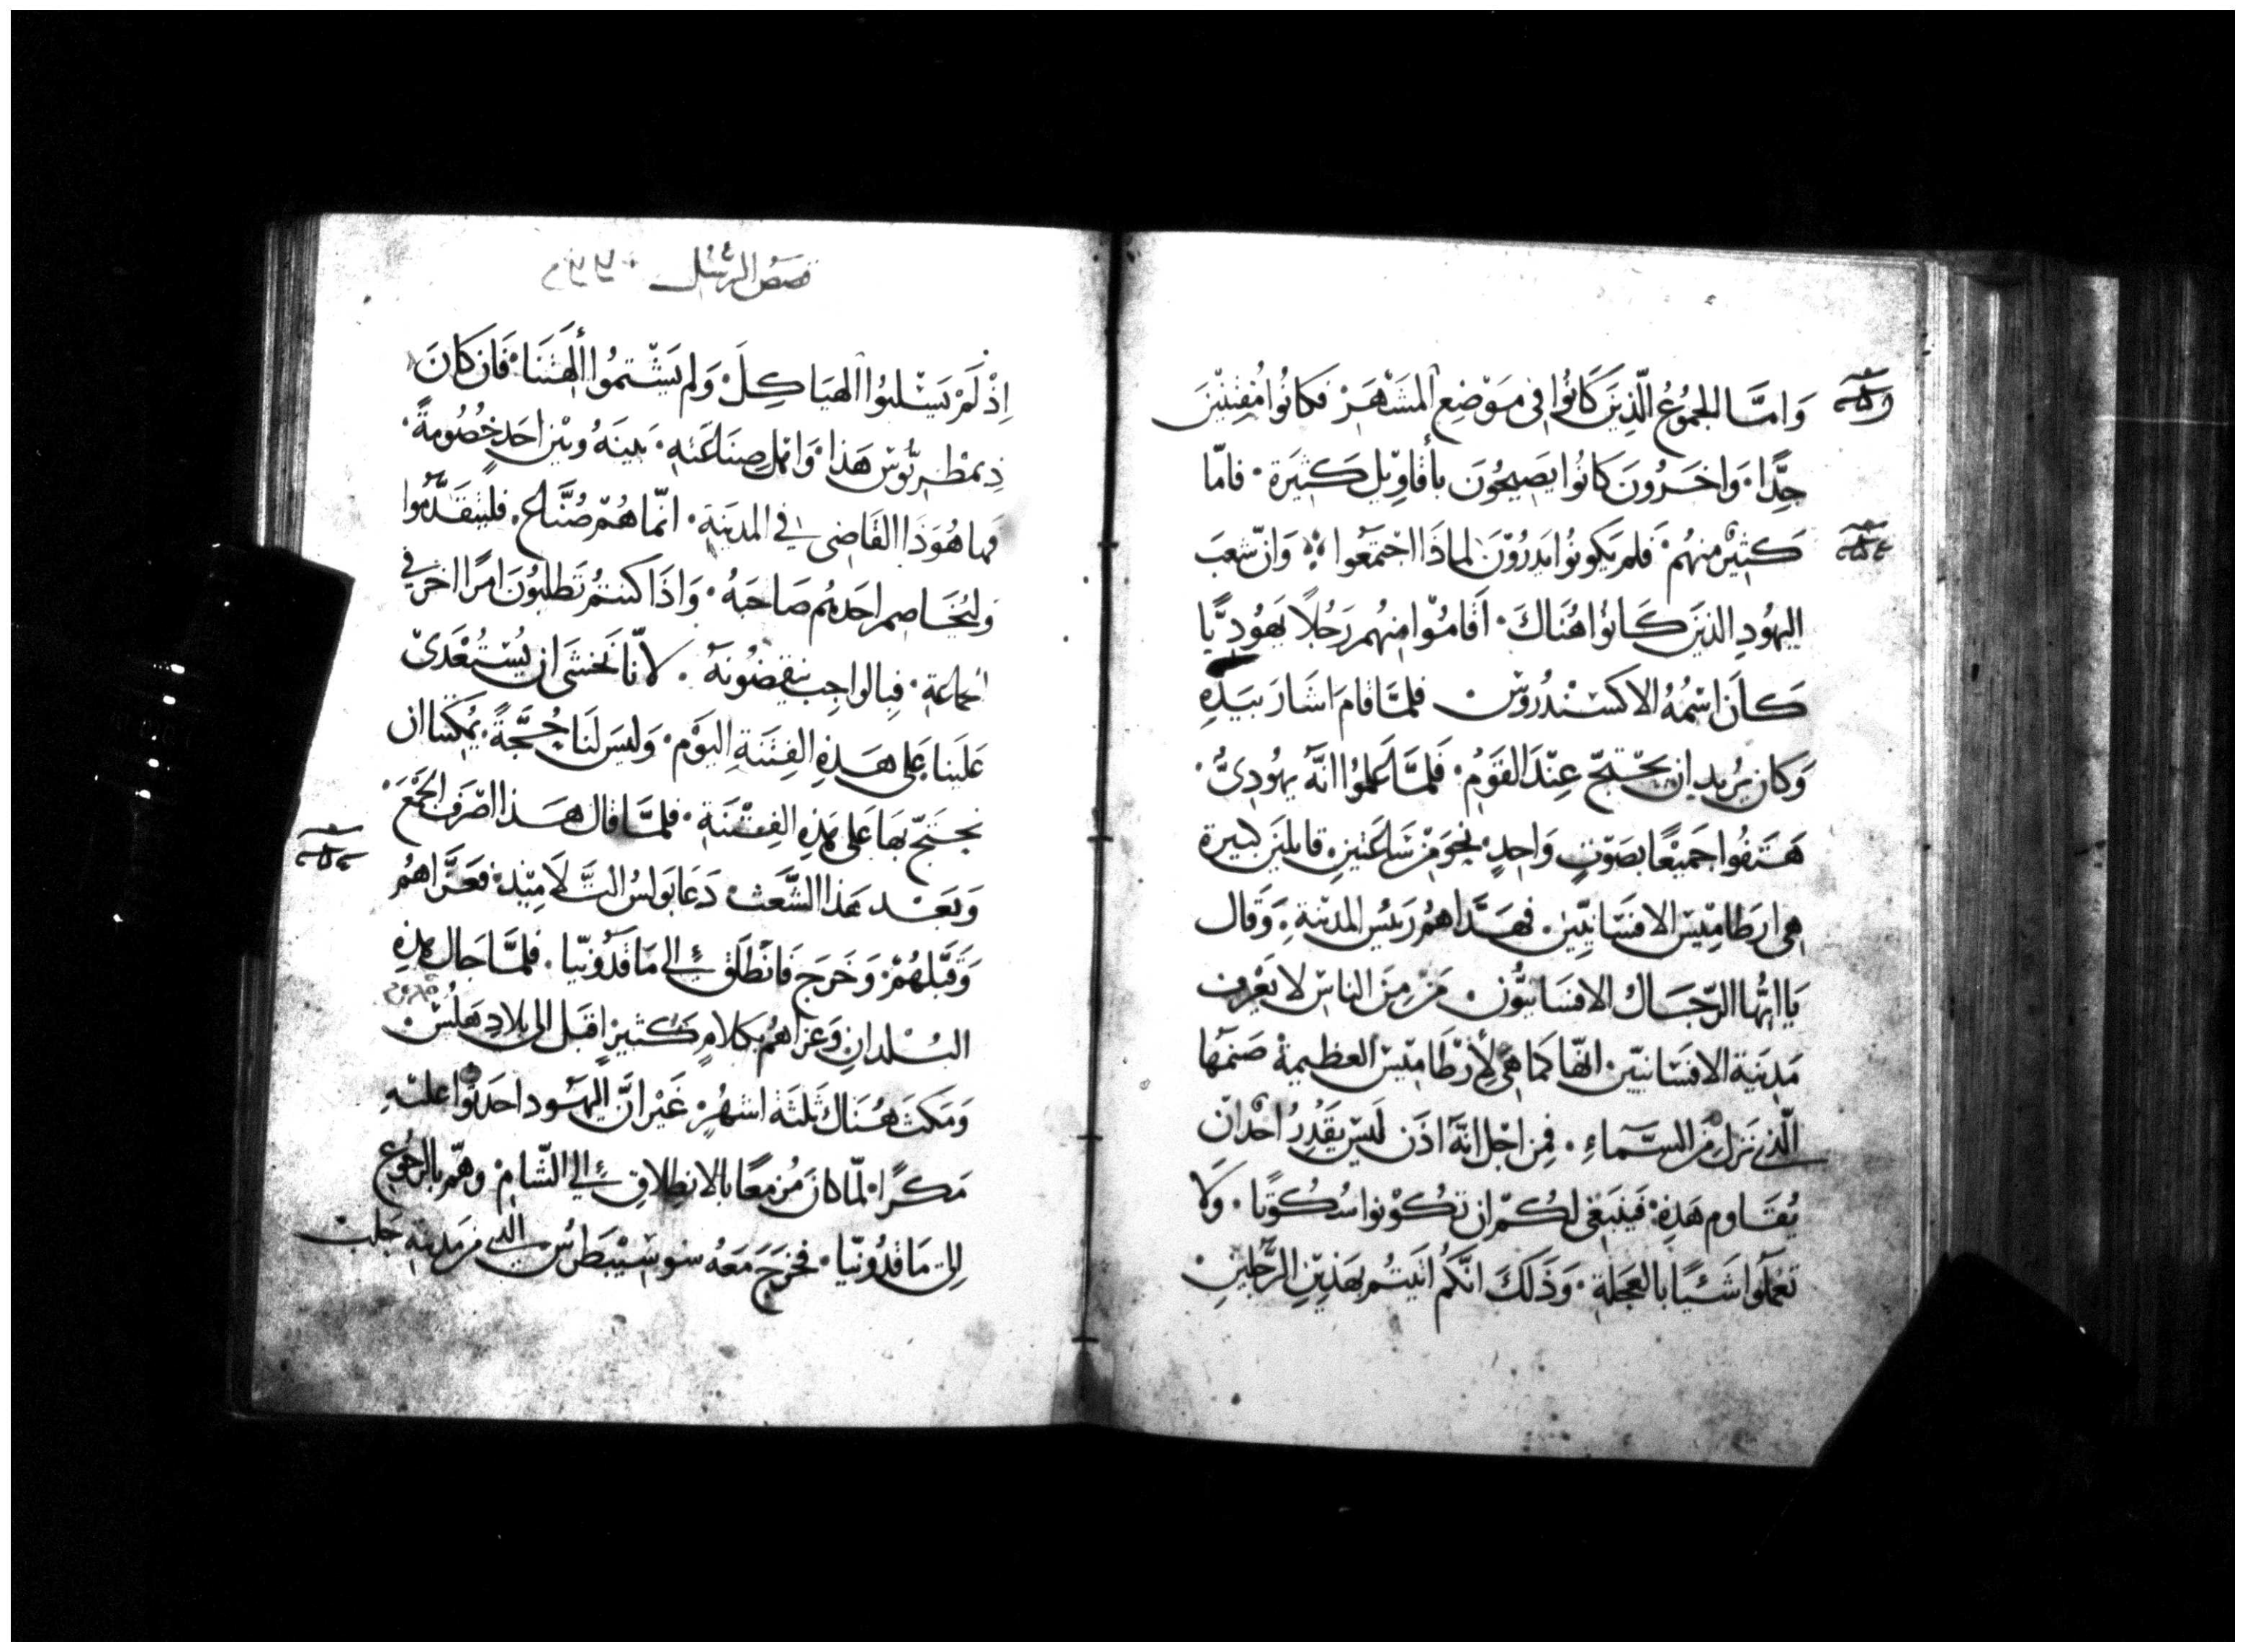 وَامَّا الجمُوعُ الَّذِينَ كَانُوا فى مَوْضِعِ المَشْهَرْ فَكانُوا مُفتِنيْنَ
جِدًّا۰ وَاخَرُونَ كَانُوا يَصِيحُونَ بأقَاوِيْلٍ كَثِيَرة۰ فامّا
كَثِيْر منهُم۰ فَلم يَكونُوا يَدرُوْنَ لماذَا اجْتمَعوا ۰ وَانّ شعبَ
اليهُودِ الذينَ كَانوُا هُنَاكَ۰ اَقَامُوْا مِنهُم رَجُلاً يَهُوُدِيًّا
كَانَ اسْمُهُ الاكسَنْدُرُوسْ فلمَّا قامَ اشَارَ بيَدِهِ
وَكان يُرِيد ان يحْتجّ عِنْدَ القَومُ۰ فَلمَّا عَلموُا انَّهَ يهُودِىٌّ۰
هَتَفُوا جَميْعًا بصَوْتٍ وَاحِدٍ۰ نحوَ مْن سَاعَتيَنِ قايلينَ كبيرة
هى ارطاميْس الافسَانِيّيْن۰ فهَدَّاهمُ رَئيسُ المدينةِ۰ وَقال
يَا ايّهُا الرّجَال الافسَانيّون۰ مَنْ مِنَ الناسْ لا يَعْرِف
مَدِينة الافسَانييّن۰ انّها كما هى لأرْطَاميْس العظيمةْ صَنمَها
الّذي نَزلَ مْن السَّمآءِ۰ فِمن اجْل انّهَ اذَن لَيسْ يَقدِرُ احْد ان
يُقَاوم هَذِهِ۰ فَينبَغى لكُمْ ان تكُوْنوا سُكُوْتًا۰ وَلا
تعْملَوا شَئيًا بالعَجَلة۰ وَذَلكَ انَّكُم اتَيتُم بهَذيْنِ الرَّجُلينْ۰
قصَصُ الرسُل
اِذْ لَمْ يَسْلبُوا الهيَاكِلَ۰ وَلم يَشْتموُا أَلهَتَنا۰ فَان كانَ
ذِيمطْريُّوسْ هَذا۰ وَاهْل صِنَاعَتهِ۰ بَينَهُ وبيْن احَدٍ خُصُومةً۰
فها هُوَذَا القَاضى فى المدينَةِ۰ انّما هُمْ صُنّاع۰ فليتقَدّموُا
وَليُخَاصم احَدهُم صَاحبَهُ۰ وَاذَا كنتمُ تَطلبُونَ امرًا اخرَ فى
الجماعة۰ فِبالوَاجِب ينقضُونهَ۰ لأنّا نخشَى ان يُسْتُعْدَىْ
عَلينا عَلى هَذهِ الفِتنَةِ اليَوْم۰ وَليسَ لنَا حُجَّةً۰ يمُكننا ان
نحتَجّ بَهَا عَلى هَذِهِ الفِتْنَةِ۰ فلمَّا قال هَذا انصَرَف الجَمْعَ۰
وَبَعْد هَذا الشَّعَث دَعَا بَولسُ التَّلاَمِيْذ۰ فعَزَّاهُمُ
وَقبَّلهُمْ۰ وَخَرَجَ فَانطَلقَ إلى مَاقدُونيّا۰ فلمَّا جَال هذِهِ
البُلدانِ وَعزاهُم بكلامٍ كَثيرٍ اقبَل الى بلادِ هَلَسُ۰
وَمَكث هُنَاك ثَلثَة اشهُرٍ۰ غَيْر انَّ اليَهُود احدَثُوا عليْهِ
مَكرًا۰ لمّا كانَ مُزمعًا بالانطِلاقِ إلى الشّامْ۰ وهَمّ بالرجُوع
اِلى مَاقدُونيّا۰ فخرَجَ مَعَهُ سوسيْبَطرُس الذي من مَدينةِ حَلبْ